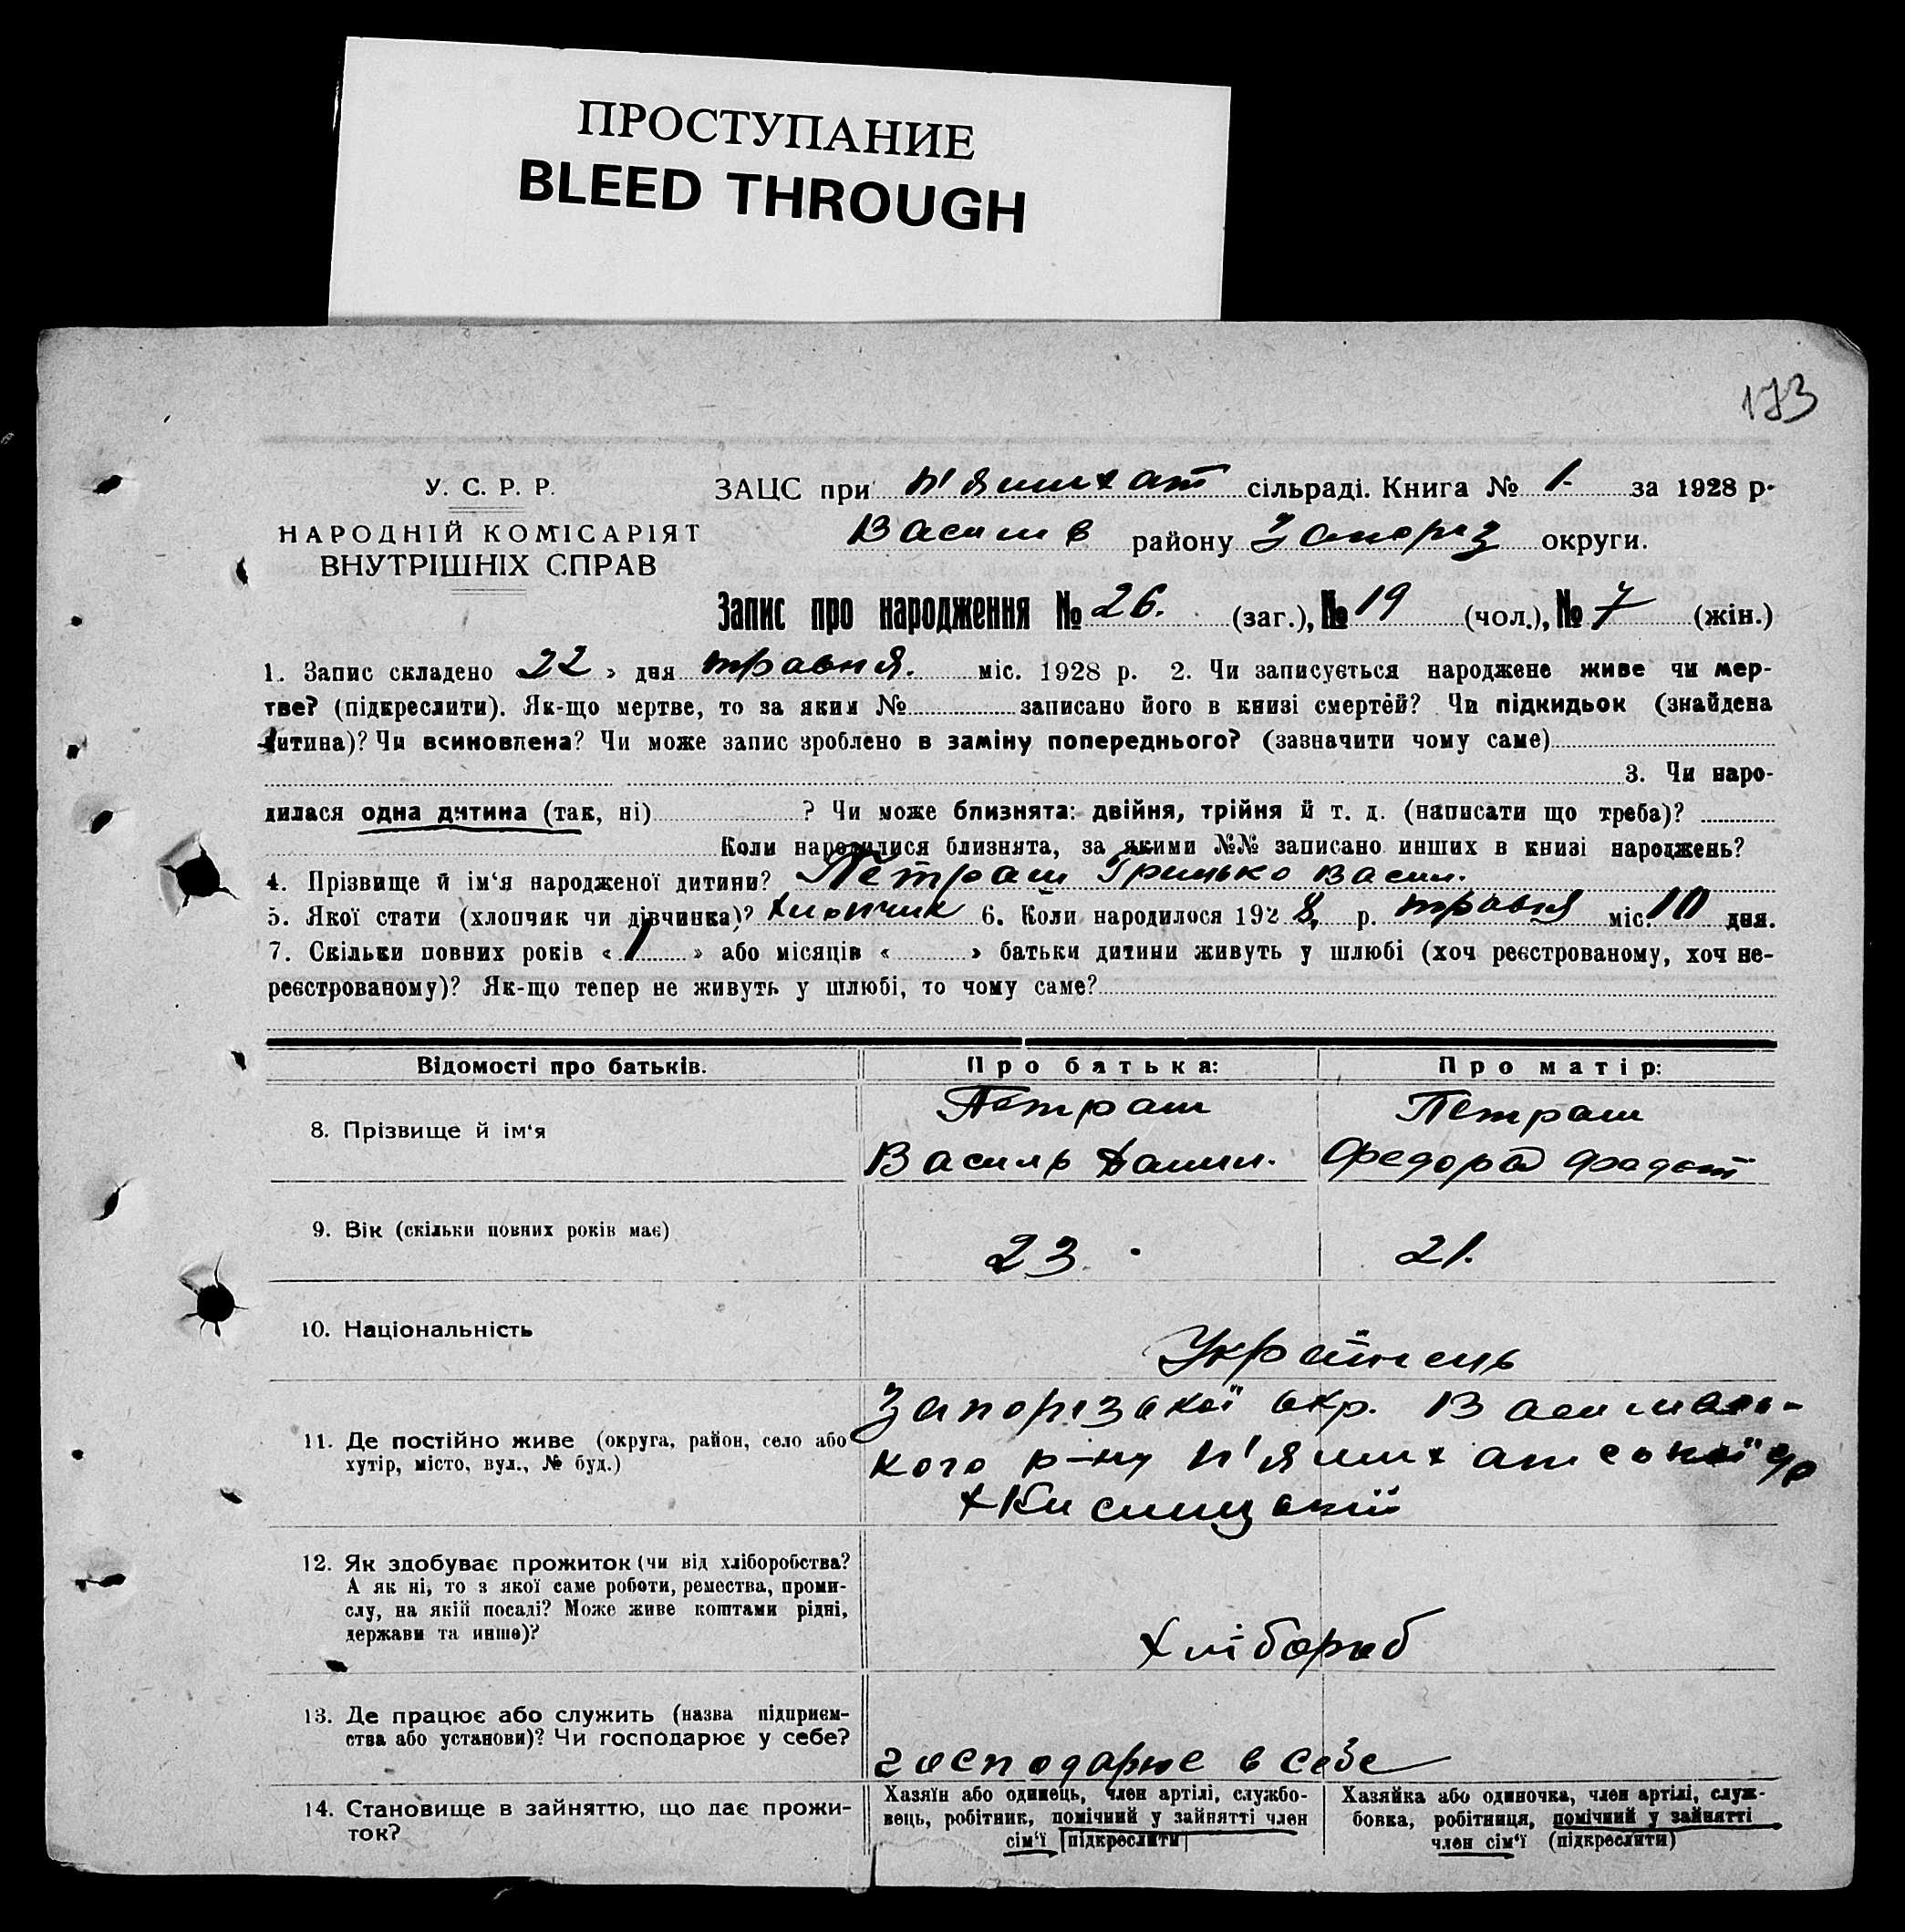 ПРОСТУПАНИЕ
BLEED THROUGH
173
У. С. Р. Р.
НАРОДНІЙ КОМІСАРІЯТ
ВНУТРІШНІХ СПРАВ
ЗАЦС при П'ятихат сільраді. Книга № 1 за 1928 р.
Васиlів району Запоріз округи.
Запис про народження № 26. (заг.), № 19 (чол.), № 7 (жін.)
1. Запис складено 22 » дня травня. міс. 1928 р. 2. Чи записується народжене живе чи мер-
тве? (підкреслити). Як-що мертве, то за яким № записано його в книзі смертей? Чи підкидьок (знайдена
дитина)? Чи всиновлена? Чи може запис зроблено в заміну попереднього? (зазначити чому саме)
3. Чи наро-
дилася одна дитина (так, ні) ? Чи може близнята: двійня, трійня й т. д. (написати що треба)?
Коли народилися близнята, за якими №№ записано инших в книзі народжень?
4. Прізвище й ім'я народженої дитини? Петраш Грицько Васил.
5. Якої стати (хлопчик чи дівчинка)? хлопчик 6. Коли народилося 1928, р. травня міс. 10 дня.
7. Скільки повних років « 1 » або місяців « » батьки дитини живуть у шлюбі (хоч реєстрованому, хоч не-
реєстрованому)? Як-що тепер не живуть у шлюбі, то чому саме?
Відомості про батьків. Про батька: Про матір:
8. Прізвище й ім'я
Петраш Петраш
Василь Данил. Федора Федот
9. Вік (скільки повних років має)
23. 21.
10. Національність
Українець
11. Де постійно живе (округа, район, село або
хутір, місто, вул., № буд.)
Запорізької окр.
кого р-ну П'ятихатської
12. Як здобуває прожиток (чи від хліборобства?
А як ні, то з якої саме роботи, ремества, проми-
слу, на якій посаді? Може живе коштами рідні,
держави та инше)?
Хлібороб
13. Де працює або служить (назва підприєм-
ства або установи)? Чи господарює у себе?
господарює в себе
14. Становище в зайняттю, що дає прожи-
ток?
Хазяїн або одинець, член артілі, службо-
вець, робітник, помічний у зайнятті член
сім'ї (підкреслити)
Хазяйка або одиночка, член артілі, служ-
бовка, робітниця, помічний у зайнятті
член сім'ї (підкреслити)